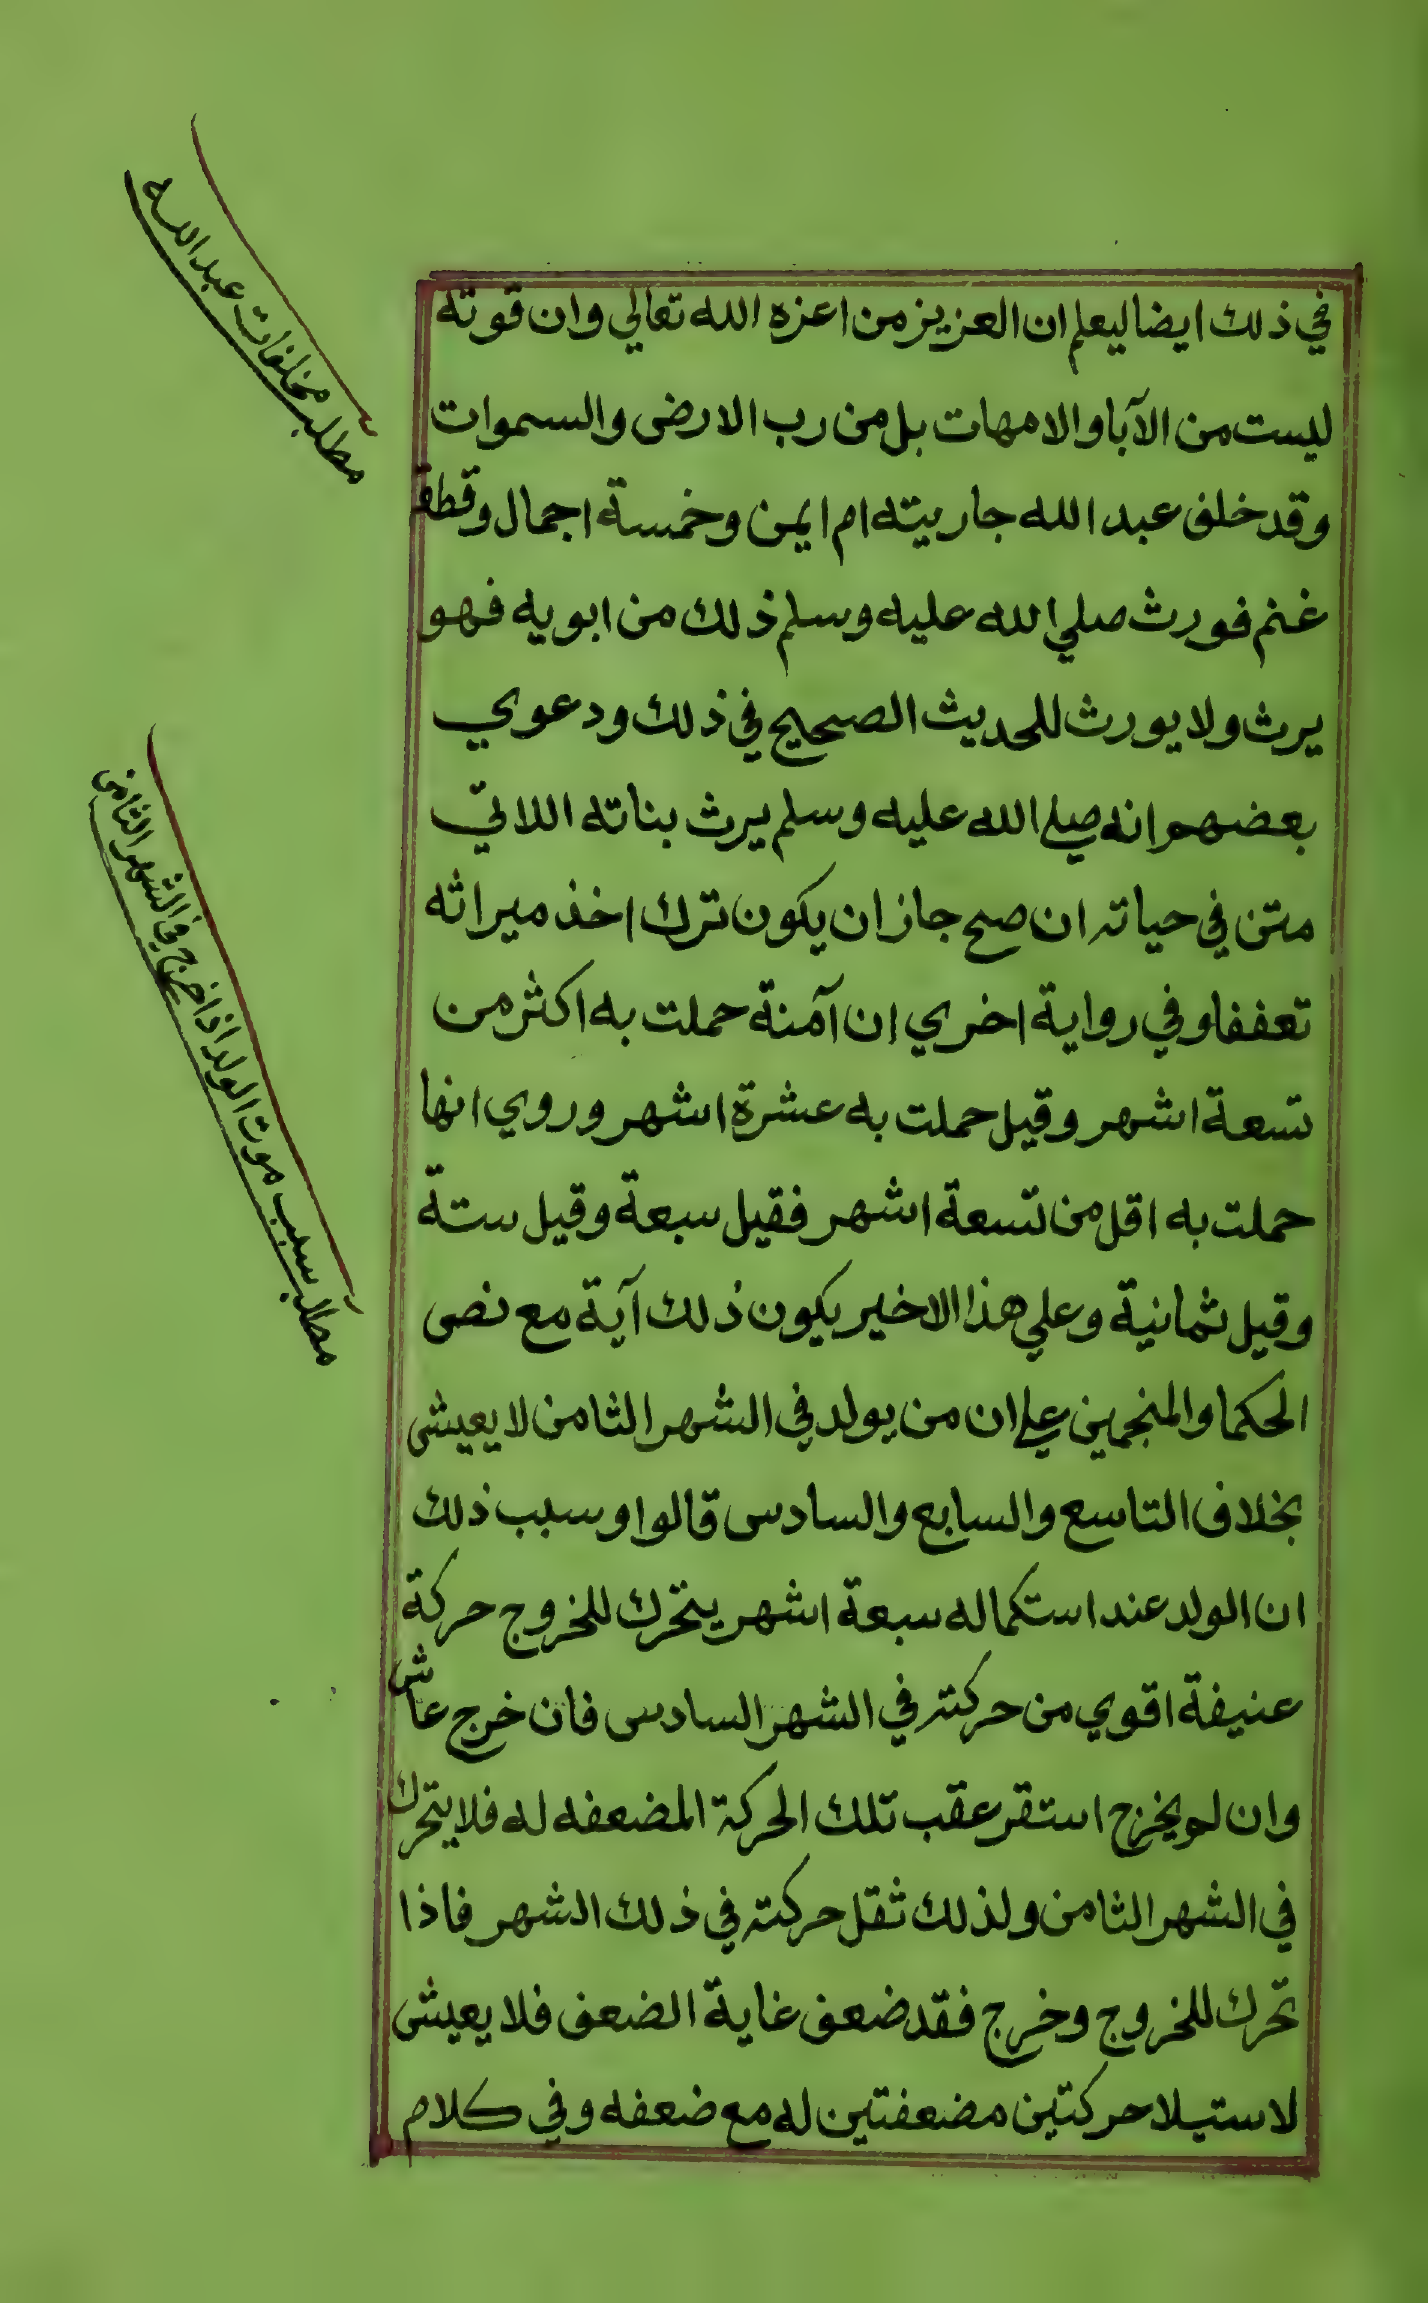 في ذلك ايضا ليعلم ان العزيز من اعزه الله تعالي وان قوته
ليست من الآبا والامهات بل من رب الارض والسموات
وقد خلف عبد الله جاريته ام ايمن وخمسة اجمال وقطعة
غنم فورث صلي الله عليه وسلم ذلك من ابويه فهو
يرث ولا يورث للحديث الصحيح في ذلك ودعوي
بعضهم انه صلي الله عليه وسلم يرث بناته اللاتي
متن في حياته ان صح جاز ان يكون ترك اخذ ميراثه
تعففا وفي رواية اخري ان آمنة حملت به اكثر من
تسعة اشهر وقيل حملت به عشرة اشهر وروي انها
حملت به اقل من تسعة اشهر فقيل سبعة وقيل ستة
وقيل ثمانية وعلي هذا الاخير يكون ذلك آية مع نص
الحكما والمنجمين علي ان من يولد في الشهر الثامن لا يعيش
بخلاف التاسع والسابع والسادس قالوا وسبب ذلك
ان الولد عند استكماله سبعة اشهر يتحرك للخروج حركة
عنيفة اقوي من حركته في الشهر السادس فان خرج عاش
وان لم يخرج استقر عقب تلك الحركة المضعفه له فلا يتحرك
في الشهر الثامن ولذلك ثقل حركته في ذلك الشهر فاذا
تحرك للخروج وخرج فقد ضعف غاية الضعف فلا يعيش
لاستيلا حركتين مضعفتين له مع ضعفه وفي كلام
مطلب مخلفات عبد الله
مطلب سبب موت الولد اذا خرج في الشهر الثامن